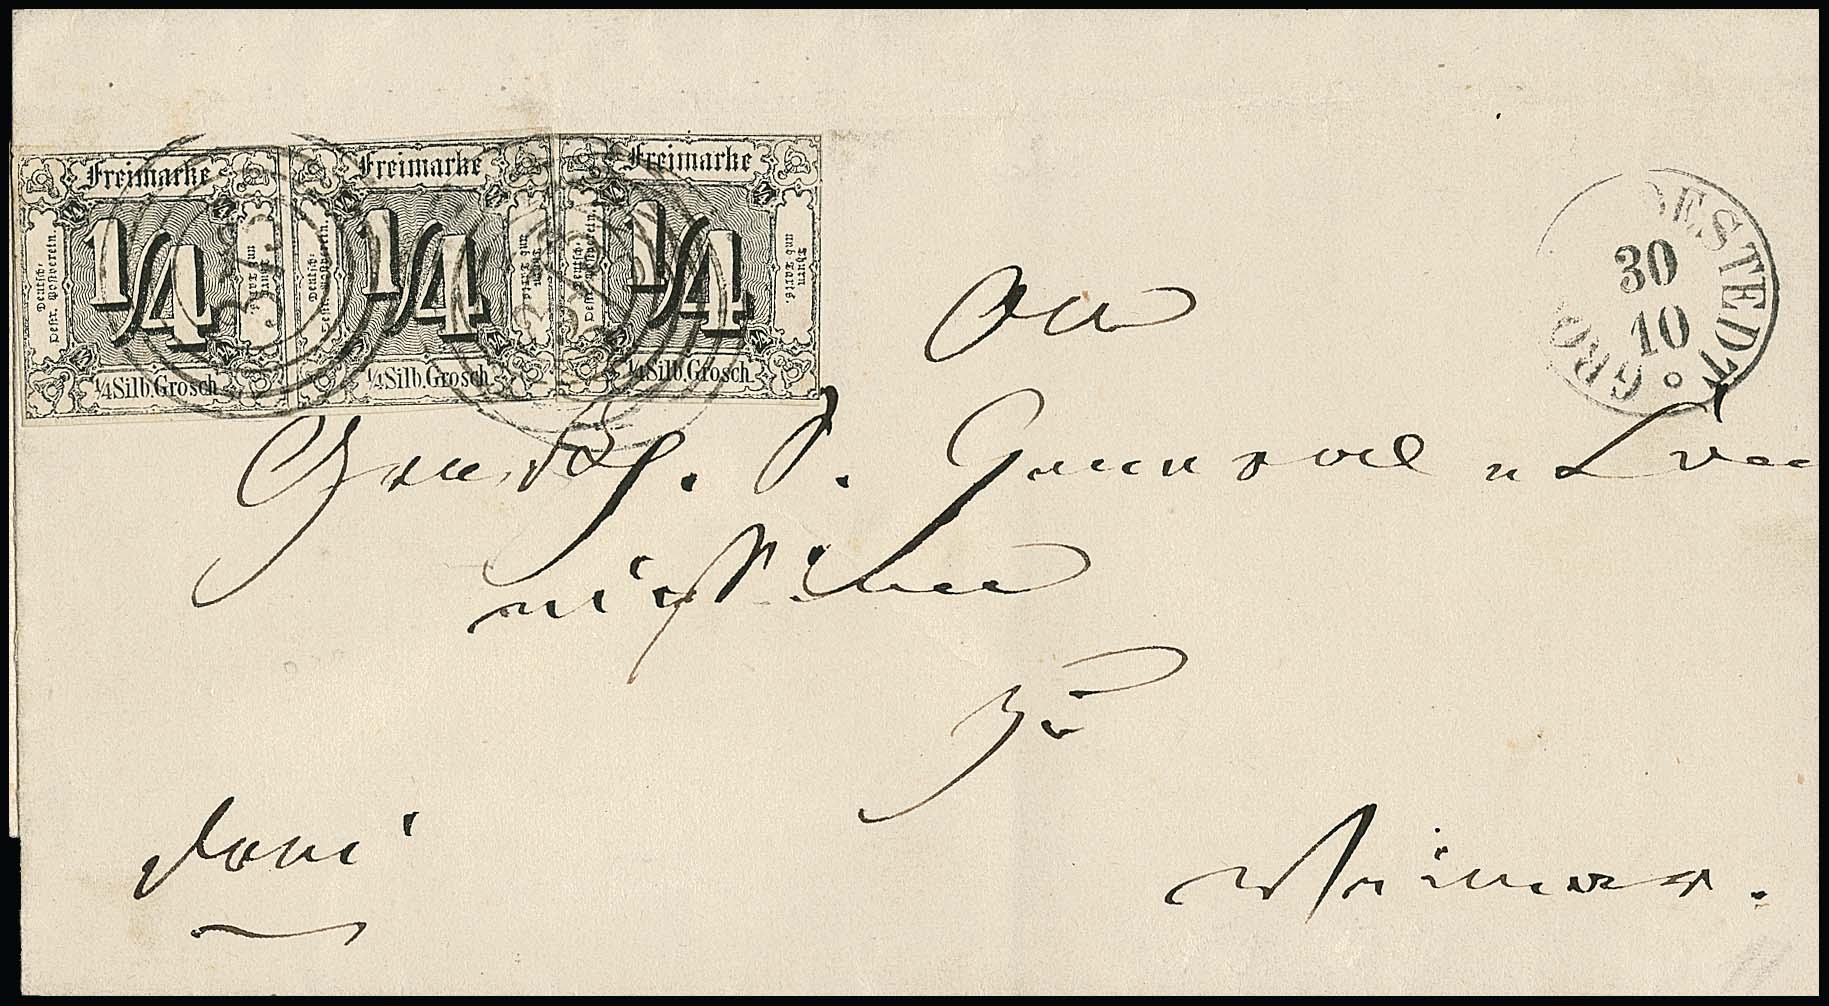 Freimarke Freimarke Freimarke
1/4 1/4 1/4
Deutsch-Oestr. Postverein. Thurn und Taxis. Deutsch-Oestr. Postverein. Thurn und Taxis. Deutsch-Oestr. Postverein. Thurn und Taxis.
1/4 Silb. Grosch. 1/4 Silb. Grosch. 1/4 Silb. Grosch.
GRO DESTEDT
30
10
An
Großh. S. General
zu
franco
Weimar.